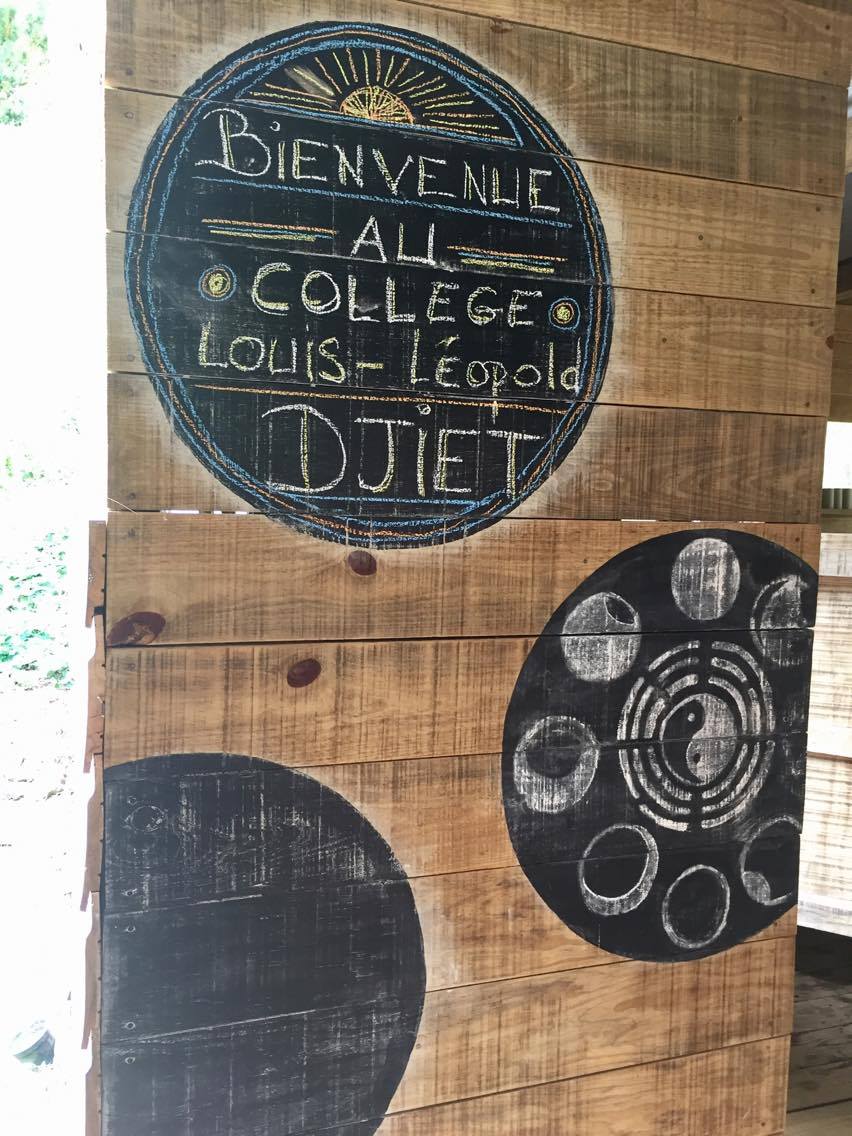 BiENVENUE
AU
COLLEGE
LOUiS - Léopold
DJiET